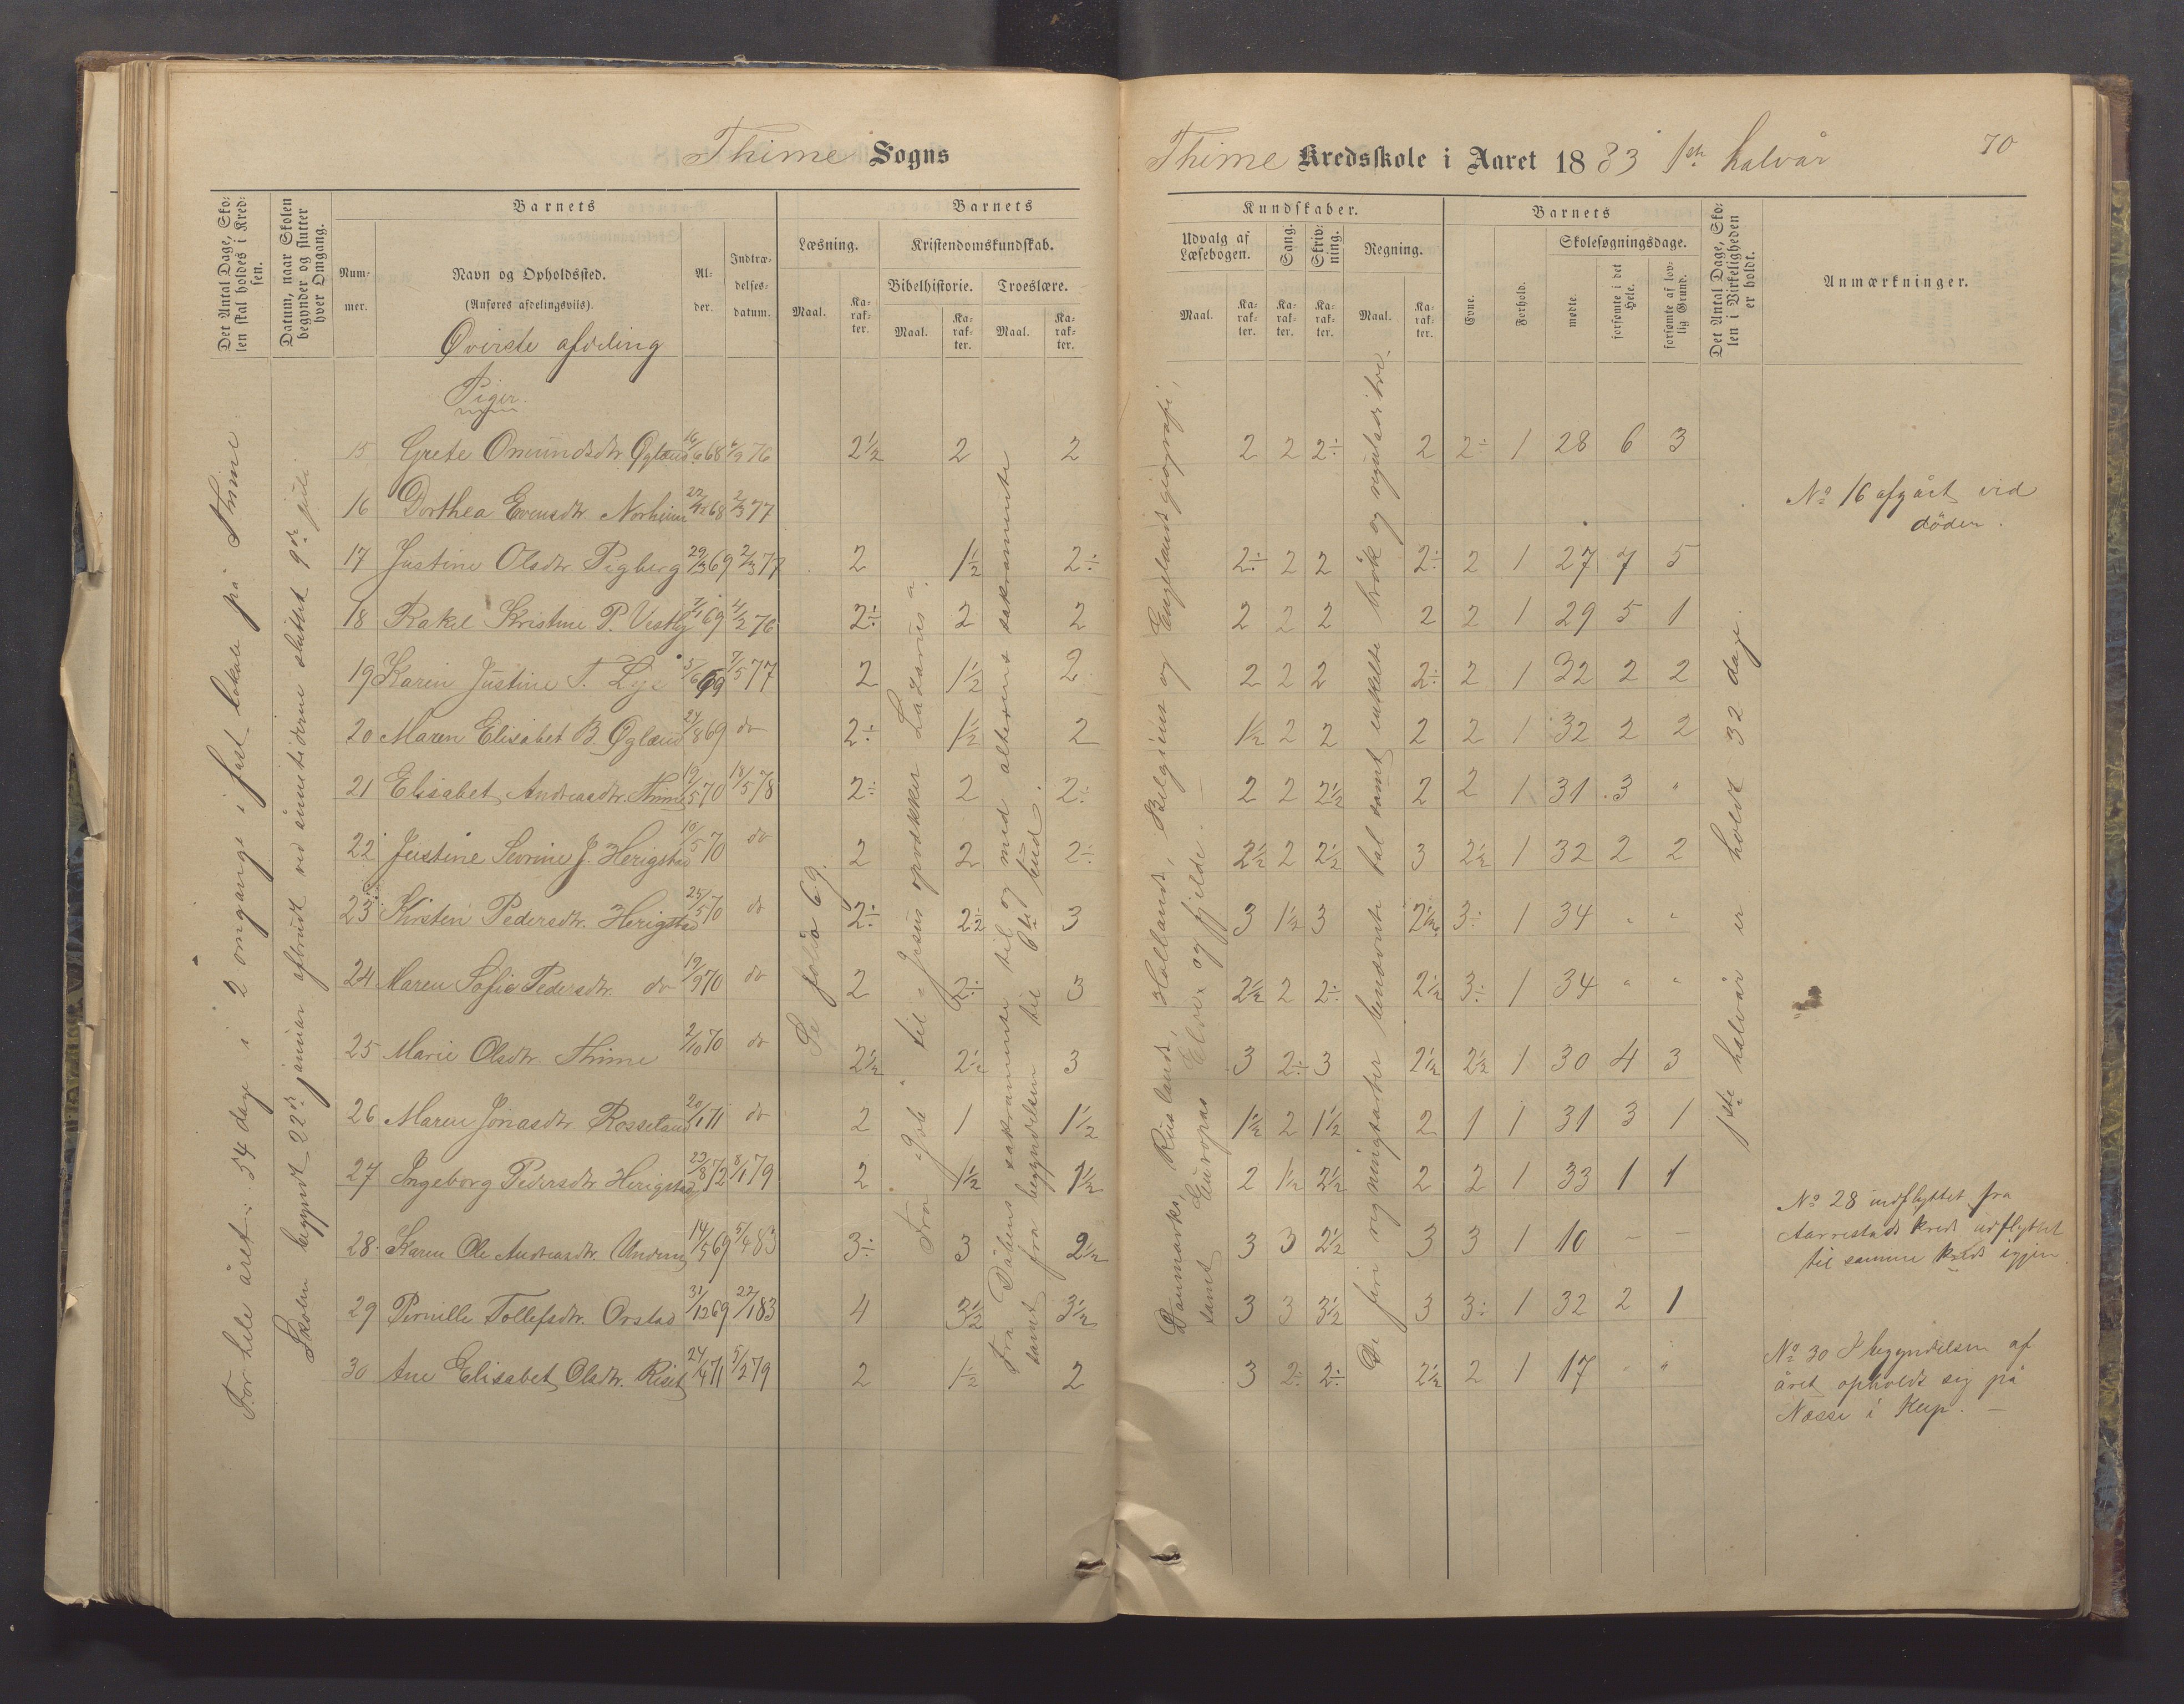 Thime Sogns
Thime Kredsskole i Aaret 1883 1ste halvår
70
Det Antal Dage, Skolen skal holdes i Kredsen.
Datum, naar Skolen begynder og slutter hver Omgang.
Barnets
Nummer.
Navn og Opholdssted.
(Anføres afdelingsviis).
Alder.
Indtrædelsesdatum.
Barnets
Læsning.
Kristendomskundskab.
Bibelhistorie.
Troeslære.
Maal.
Karakter.
Maal.
Karakter.
Maal.
Karakter.
Kundskaber.
Udvalg af Læsebogen.
Sang.
Skrivning.
Regning.
Maal.
Karakter.
Karakter.
Karakter.
Maal.
Karakter.
Barnets
Evne.
Forhold.
Skolesøgningsdage.
mødte.
forsømte i det Hele.
forsømte af lovlig Grund.
Det Antal Dage, Skolen i Virkeligheden er holdt.
Anmærkninger.
Øverste afdeling
Piger.
For hele året: 54 dage i 2 omgange i fast lokale på Thime.
Skolen begyndt 22de januar afbrudt ved ånnetiderne sluttet 9de juli
Se folio 69.
Fra "Gob" til "Jesus opvækker Lazarus".
Fra Dåbens sakramente til og med alterens sakramente
samt fra begyndelsen til 6te bud.
Danmarks, Ruslands, Hollands, Belgiens og Englands geografi,
samt Europas Elve og fjelde.
De fire regningsarter benævnte tal samt enkelte brøk og reguladetri.
1ste halvår er holdt 32 dage.
15 Grete Omundsdtr. Øgland 16/6 68 4/9 76 2½ 2 2 2 2 2÷ 2 2÷ 1 28 6 3
16 Dorthea Evensdtr Norheim 27/12 68 2/3 77
No 16 afgået ved
döden.
17 Justine Olsdtr Tegberg 29/3 69 2/3 77 2 1½ 2÷ 2÷ 2 2 2÷ 2 1 27 7 5
18 Rakel Kristine P. Vestly 7/1 69 4/2 76 2÷ 2 2 2 2 2 2 2 1 29 5 1
19 Karen Justine T. Lye 5/6 69 7/5 77 2 1½ 2 2 2 2 2÷ 2 1 32 2 2
20 Maren Elisabet B. Øgland 24/8 69 do 2÷ 1½ 2 1½ 2 2 2 2 1 32 2 2
21 Elisabet Andreasdtr. Thime 12/5 70 18/5 78 2÷ 2 2÷ 2 2 2½ 2 2 1 31 3 "
22 Justine Sevrine J. Herigstad 10/5 70 do 2 2 2÷ 2½ 2 2½ 3 2½ 1 32 2 2
23 Kirsten Pedersdtr. Herigstad 25/5 70 do 2÷ 2½ 3 3 1½ 3 2½ 3÷ 1 34 " "
24 Maren Sofie Pedersdtr. do 12/9 70 do 2 2÷ 3 2½ 2 2÷ 2½ 3÷ 1 34 " "
25 Marie Olsdtr. Thime 2/10 70 do 2½ 2½ 3 3 2÷ 3 2½ 2½ 1 30 4 3
26 Maren Jonasdtr Rosseland 20/1 71 do 2 1 1½ 1½ 2 1½ 2 1 1 31 3 1
27 Ingeborg Pedersdtr Herigstad 23/8 72 8/1 79 2 1½ 1½ 2 1½ 2½ 2 2 1 33 1 1
28 Karen Ole Andreasdtr. Undem 14/5 69 5/4 83 3÷ 3 2½ 3 3 2½ 3 3 1 10 – –
No 28 indflyttet fra
Aarrestads kreds udflyttet
til samme kreds igjen
29 Pernille Tollefsdtr. Orstad 31/12 69 22/1 83 4 3½ 3½ 3 3 3½ 3 3÷ 1 32 2 1
30 Ane Elisabet Olsdtr. Riset 24/4 71 5/2 79 2 1½ 2 3 2÷ 2÷ 2½ 2 1 17 " "
No 30 I begyndelsen af
året opholdt sig på
Næsse i Klep. –